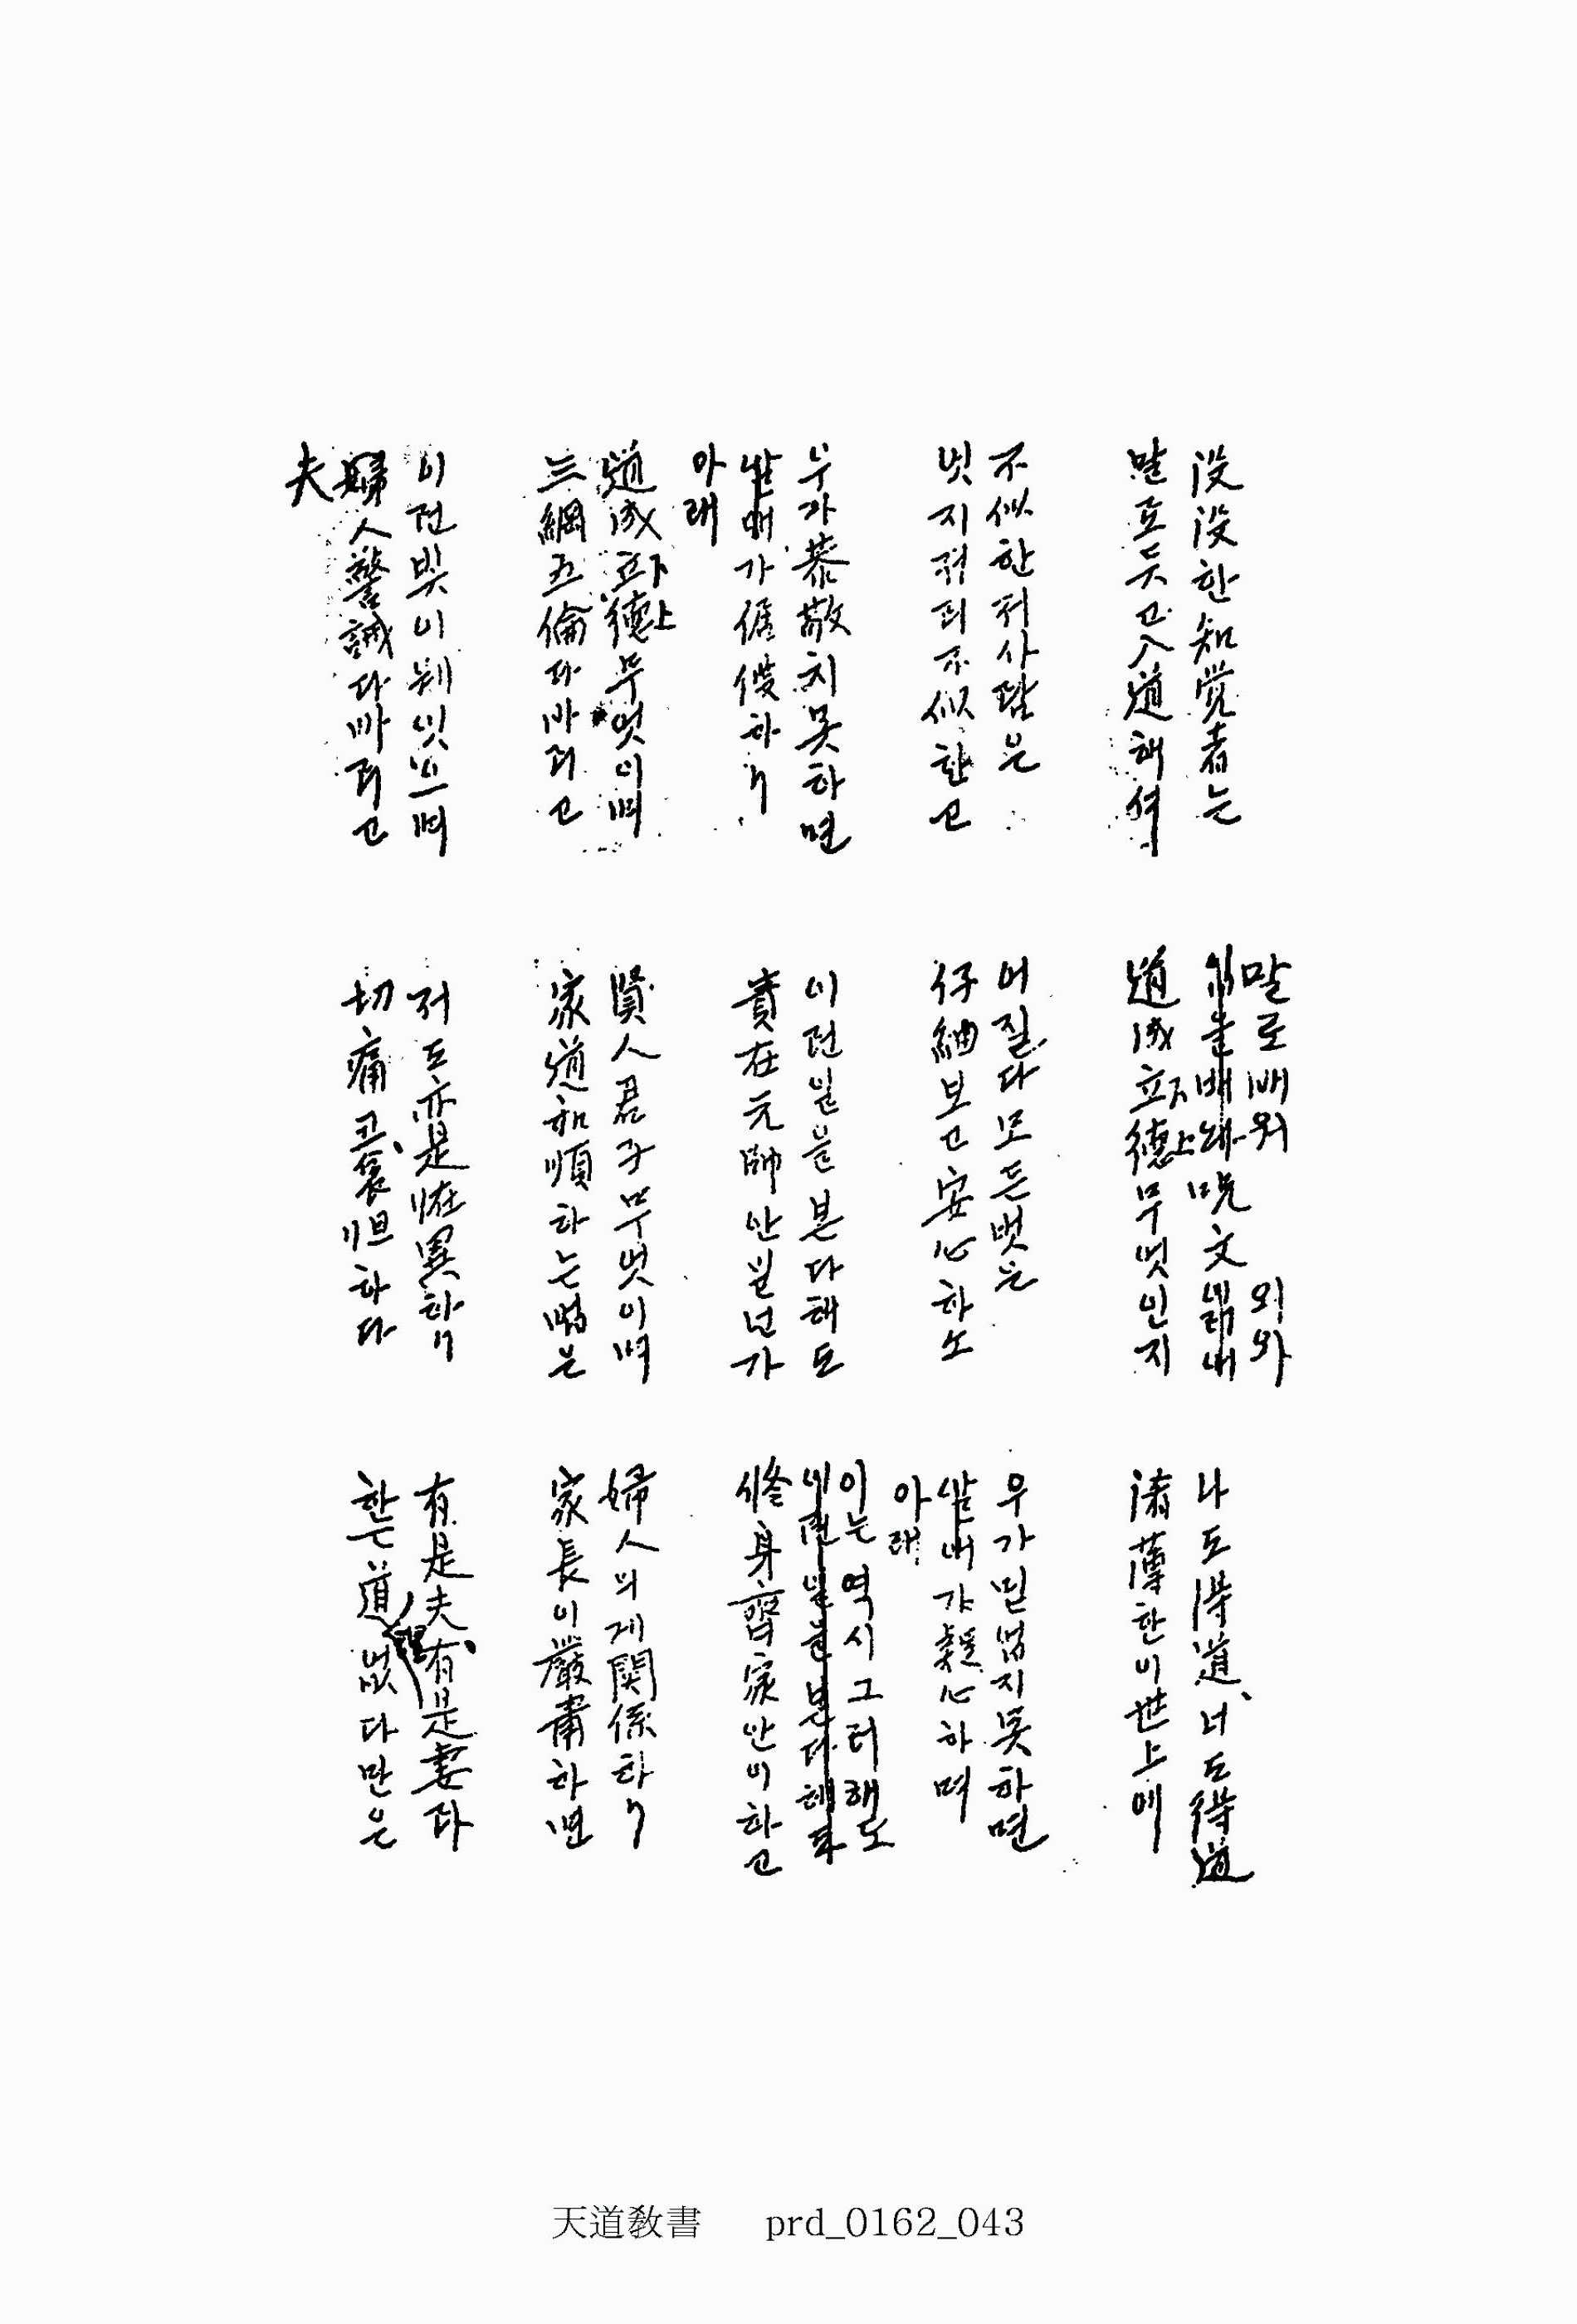 沒沒한知覺者는
말로듯고入道해셔
말로배워呪文외와
道成立德무엇인지
나도得道、너도得道
淆薄한이世上에
不似한저사람은
엇지저리不似한고
어질다모든벗은
仔細보고安心하소
우가믿업지못하면
아래가疑心하며
우가恭敬치못하면
아래가倨傲하니
이런일을본다해도
責在元帥안일넌가
이는역시그러해도
修身齊家안이하고
道成立德무엇이며
三綱五倫다바리고
賢人君子무엇이며
家道和順하는法은
婦人의게関係하니
家長이嚴肅하면
이런빗이웨잇으며
婦人警誡다빠리고
夫
저도亦是怪異하니
切痛코、哀怛하다
有是夫、有是妻라
한는道理없다만은
天道敎書 prd_0162_043